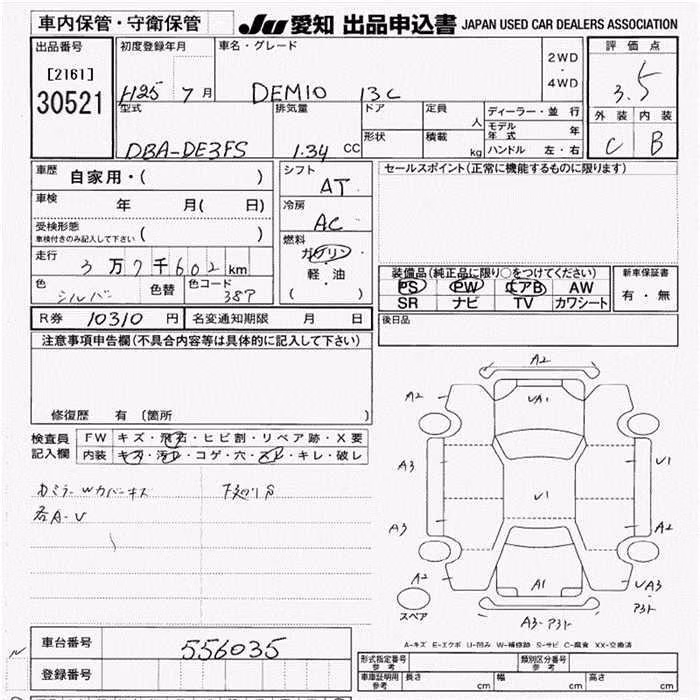 車内保管・守衛保管
JU 愛知 出品申込書 JAPAN USED CAR DEALERS ASSOCIATION
出品番号
[2161]
30521
初度登録年月
H25 7 月
車名・グレード
DEMIO 13C
2WD
・
4WD
評価点
3.5
外装 内装
C B
型式
DBA-DE3FS
排気量
1.34 CC
ドア
形状
定員
人
積載
kg
ディーラー・並行
モデル年式 年
ハンドル 左・右
車歴
自家用・( )
車検
年 月( 日)
受検形態
車検付きのみ記入して下さい ( )
走行
3万7千602km
色
シルバー
色替
色コード
38P
シフト
AT
冷房
AC
燃料
ガソリン
軽・油
( )
セールスポイント(正常に機能するものに限ります)
装備品(純正品に限り○をつけてください)
PS PW エアB AW
SR ナビ TV カワシート
新車保証書
有・無
後日品
R券 10310 円 名変通知期限 月 日
注意事項申告欄(不具合内容等は具体的に記入して下さい)
修復歴 有 (箇所 )
検査員
記入欄
FW キズ・飛石・ヒビ割・リペア跡・X要
内装 キズ・汚レ・コゲ・穴・スレ・キレ・破レ
各A-U
A2
A2
UA1
A3
U1
U1
A3
A2
A2
A1
UA3
A3
スペア
A-キズ E-エクボ U-凹み W-補修跡 S-サビ C-腐食 XX-交換済
車台番号
556035
登録番号
形式指定番号
参考
類別区分番号
参考
車庫証明用
参考
長さ cm 幅 cm 高さ cm